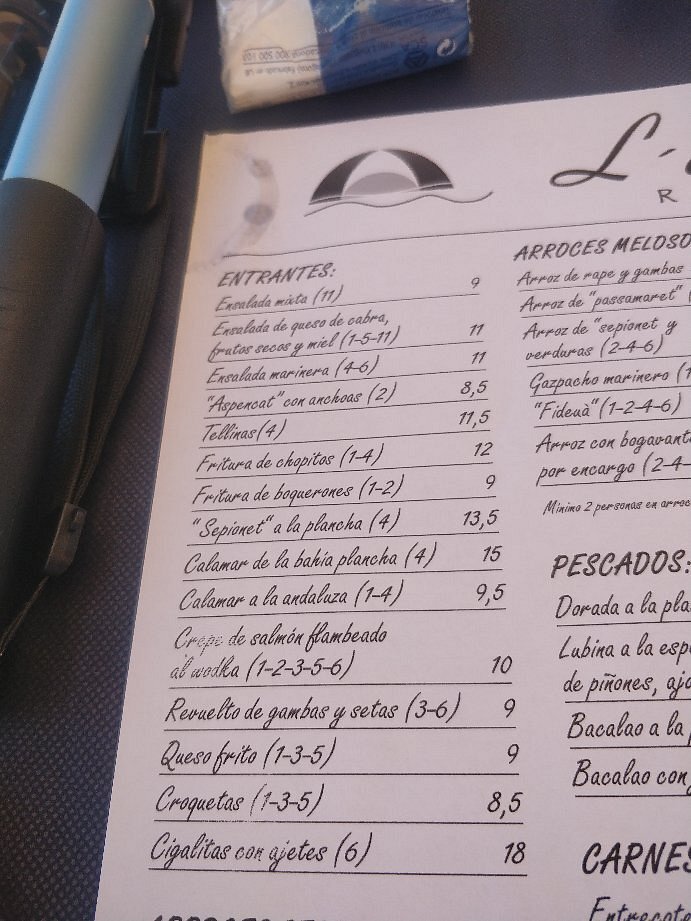 L'
R
ENTRANTES:
Ensalada mixta (11) 9
Ensalada de queso de cabra,
frutos secos y miel (1-5-11) 11
Ensalada marinera (4-6) 11
"Aspencat" con anchoas (2) 8,5
Tellinas (4) 11,5
Fritura de chopitos (1-4) 12
Fritura de boquerones (1-2) 9
"Sepionet" a la plancha (4) 13,5
Calamar de la bahía plancha (4) 15
Calamar a la andaluza (1-4) 9,5
Crepe de salmón flambeado
al wodka (1-2-3-5-6) 10
Revuelto de gambas y setas (3-6) 9
Queso frito (1-3-5) 9
Croquetas (1-3-5) 8,5
Cigalitas con ajetes (6) 18
ARROCES MELOSO
Arroz de rape y gambas
Arroz de "passamaret" (
Arroz de "sepionet y
verduras (2-4-6)
Gazpacho marinero (1
"Fideuà" (1-2-4-6)
Arroz con bogavant
por encargo (2-4-
Mínimo 2 personas en arroc
PESCADOS:
Dorada a la pla
Lubina a la esp
de piñones, ajo
Bacalao a la
Bacalao con
CARNES
Entrecote